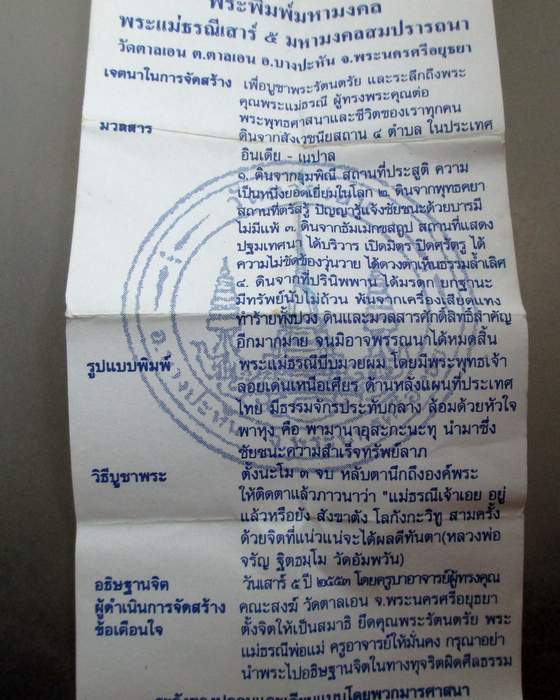 พระพิมพ์มหามงคล
พระแม่ธรณีเสาร์ ๕ มหามงคลสมปรารถนา
วัดตาลเอน ต.ตาลเอน อ.บางปะหัน จ.พระนครศรีอยุธยา
เจตนาในการจัดสร้าง เพื่อบูชาพระรัตนตรัย และระลึกถึงพระ
คุณพระแม่ธรณี ผู้ทรงพระคุณต่อ
พระพุทธศาสนาและชีวิตของเราทุกคน
มวลสาร ดินจากสังเวชนียสถาน ๔ ตำบล ในประเทศ
อินเดีย - เนปาล
๑. ดินจากลุมพินี สถานที่ประสูติ ความ
เป็นหนึ่งยอดเยี่ยมในโลก ๒. ดินจากพุทธคยา
สถานที่ตรัสรู้ ปัญญารู้แจ้งชัยชนะด้วยบารมี
ไม่มีแพ้ ๓. ดินจากธัมเมกขสถูป สถานที่แสดง
ปฐมเทศนา ได้บริวาร เปิดมิตร ปิดศรัตรู ได้
ความไม่ขัดข้องวุ่นวาย ได้ดวงตาเห็นธรรมล้ำเลิศ
๔. ดินจากที่ปรินิพพาน ได้มรดก ยกฐานะ
มีทรัพย์นับไม่ถ้วน พ้นจากเครื่องเสียดแทง
ทำร้ายทั้งปวง ดินและมวลสารศักดิ์สิทธิ์สำคัญ
อีกมากมาย จนมิอาจพรรณนาได้หมดสิ้น
รูปแบบพิมพ์ พระแม่ธรณีบีบมวยผม โดยมีพระพุทธเจ้า
ลอยเด่นเหนือเศียร ด้านหลังแผนที่ประเทศ
ไทย มีธรรมจักรประทับกลาง ล้อมด้วยหัวใจ
พาหุง คือ พามานาอุสะภะนะทุ นำมาซึ่ง
ชัยชนะความสำเร็จทรัพย์ลาภ
วิธีบูชาพระ ตั้งนะโม ๓ จบ หลับตานึกถึงองค์พระ
ให้ติดตาแล้วภาวนาว่า "แม่ธรณีเจ้าเอย อยู่
แล้วหรือยัง สังขาตัง โลกังกะวิทู สามครั้ง
ด้วยจิตที่แน่วแน่จะได้ผลดีทันตา(หลวงพ่อ
จรัญ ฐิตธมฺโม วัดอัมพวัน)
อธิษฐานจิต วันเสาร์ ๕ ปี ๒๕๕๓ โดยครูบาอาจารย์ผู้ทรงคุณ
ผู้ดำเนินการจัดสร้าง คณะสงฆ์ วัดตาลเอน จ.พระนครศรีอยุธยา
ข้อเตือนใจ ตั้งจิตให้เป็นสมาธิ ยึดคุณพระรัตนตรัย พระ
แม่ธรณีพ่อแม่ ครูอาจารย์ให้มั่นคง กรุณาอย่า
นำพระไปอธิษฐานจิตในทางทุจริตผิดศีลธรรม